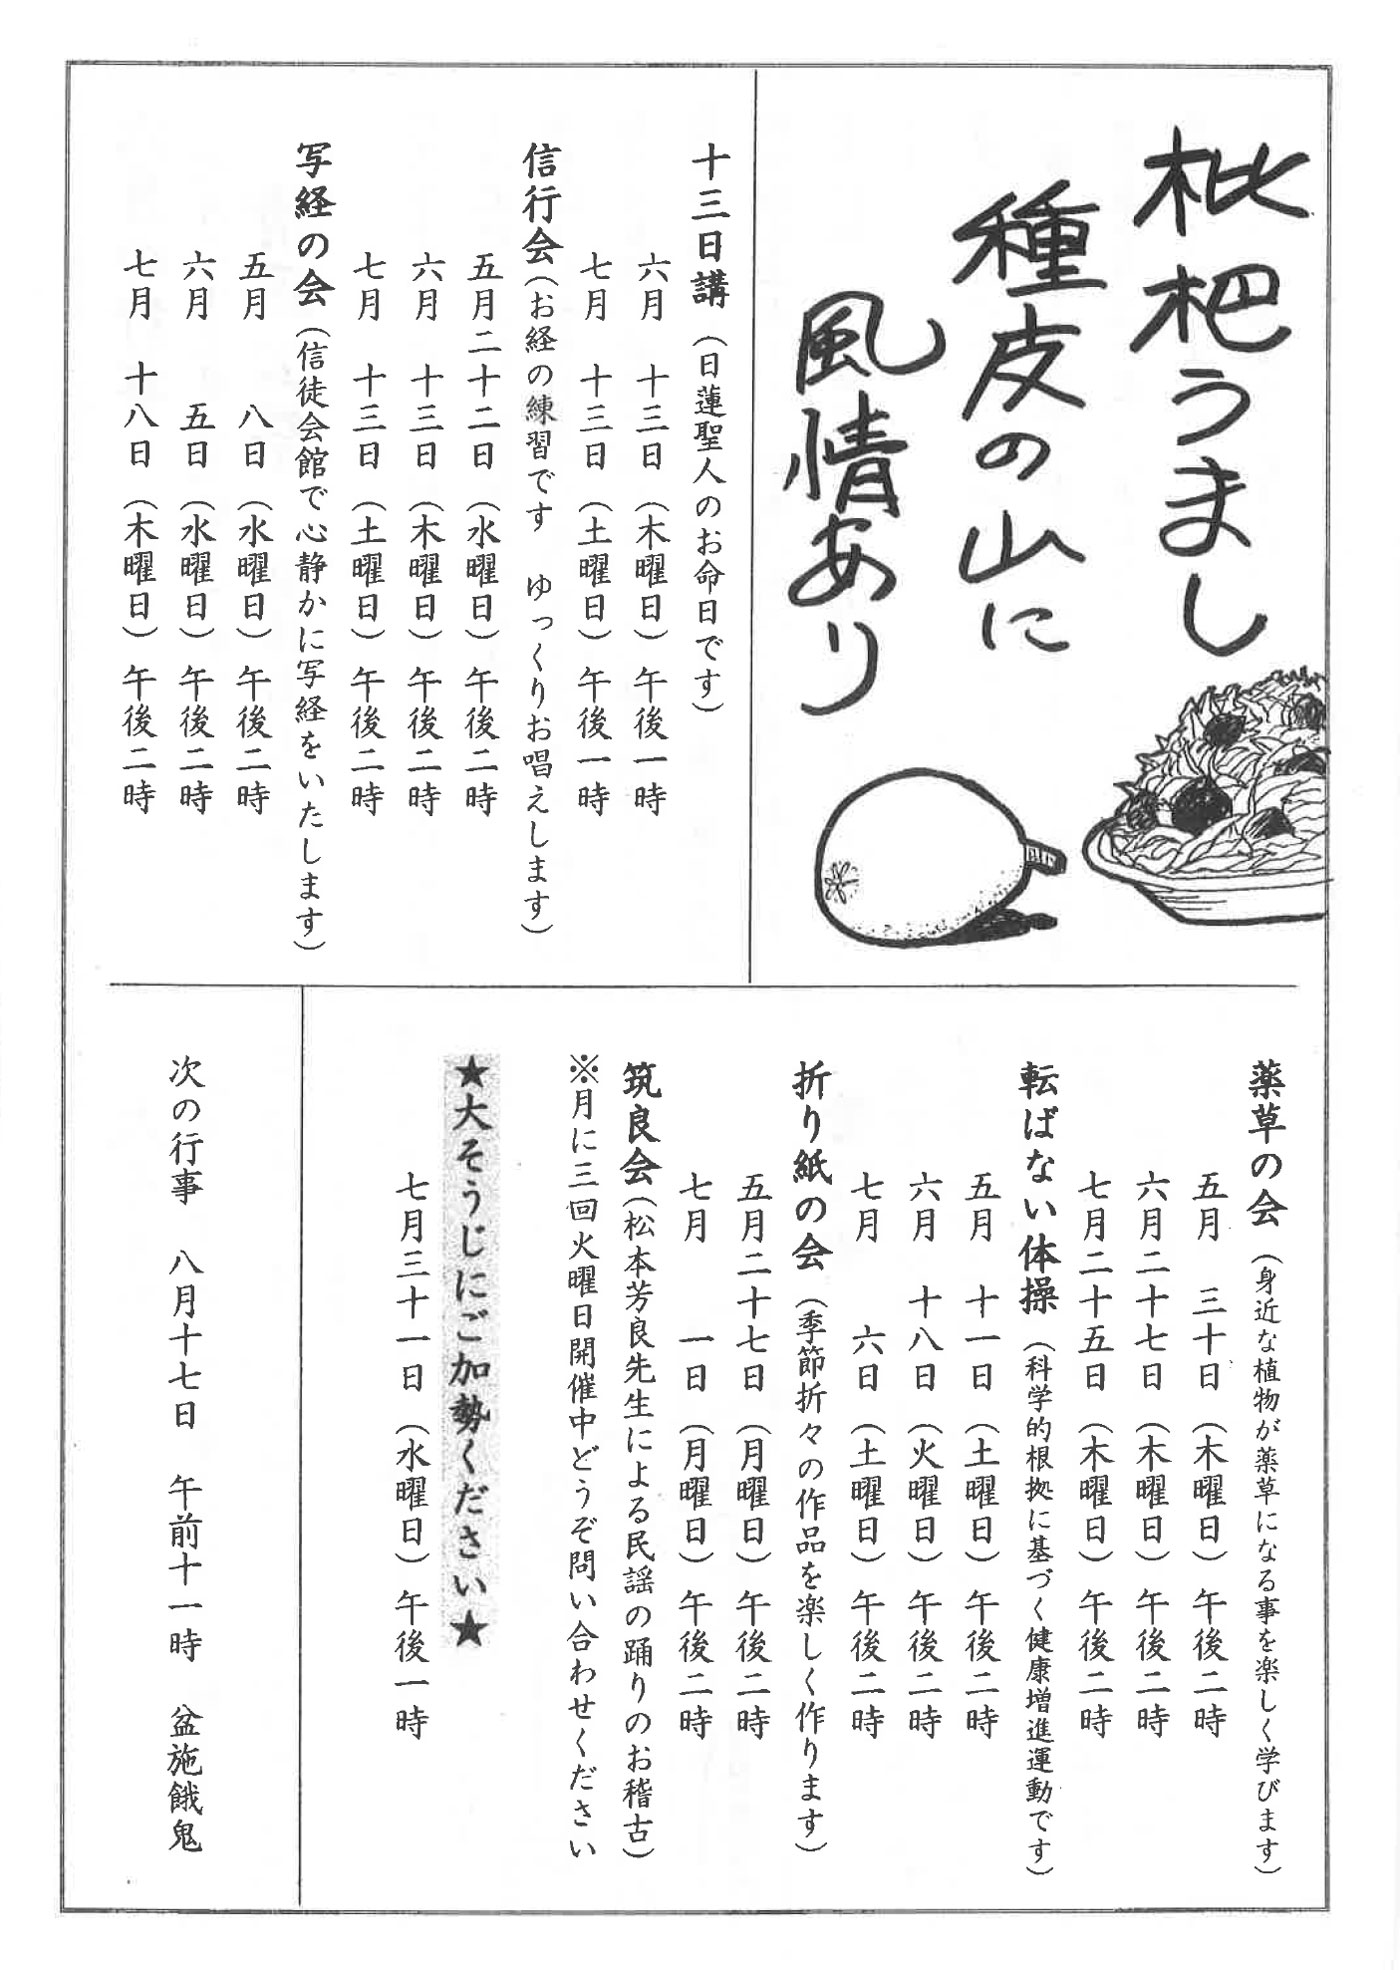 枇杷うまし
種皮の山に
風情あり
十三日講（日蓮聖人のお命日です）
六月　十三日（木曜日）午後一時
七月　十三日（土曜日）午後一時
信行会（お経の練習です　ゆっくりお唱えします）
五月二十二日（水曜日）午後二時
六月　十三日（木曜日）午後二時
七月　十三日（土曜日）午後二時
写経の会（信徒会館で心静かに写経をいたします）
五月　　八日（水曜日）午後二時
六月　　五日（水曜日）午後二時
七月　十八日（木曜日）午後二時
薬草の会（身近な植物が薬草になる事を楽しく学びます）
五月　三十日（木曜日）午後二時
六月二十七日（木曜日）午後二時
七月二十五日（木曜日）午後二時
転ばない体操（科学的根拠に基づく健康増進運動です）
五月　十一日（土曜日）午後二時
六月　十八日（火曜日）午後二時
七月　　六日（土曜日）午後二時
折り紙の会（季節折々の作品を楽しく作ります）
五月二十七日（月曜日）午後二時
七月　　一日（月曜日）午後二時
筑良会（松本芳良先生による民謡の踊りのお稽古）
※月に三回火曜日開催中どうぞ問い合わせください
★大そうじにご加勢ください★
七月三十一日（水曜日）午後一時
次の行事　八月十七日　午前十一時　盆施餓鬼